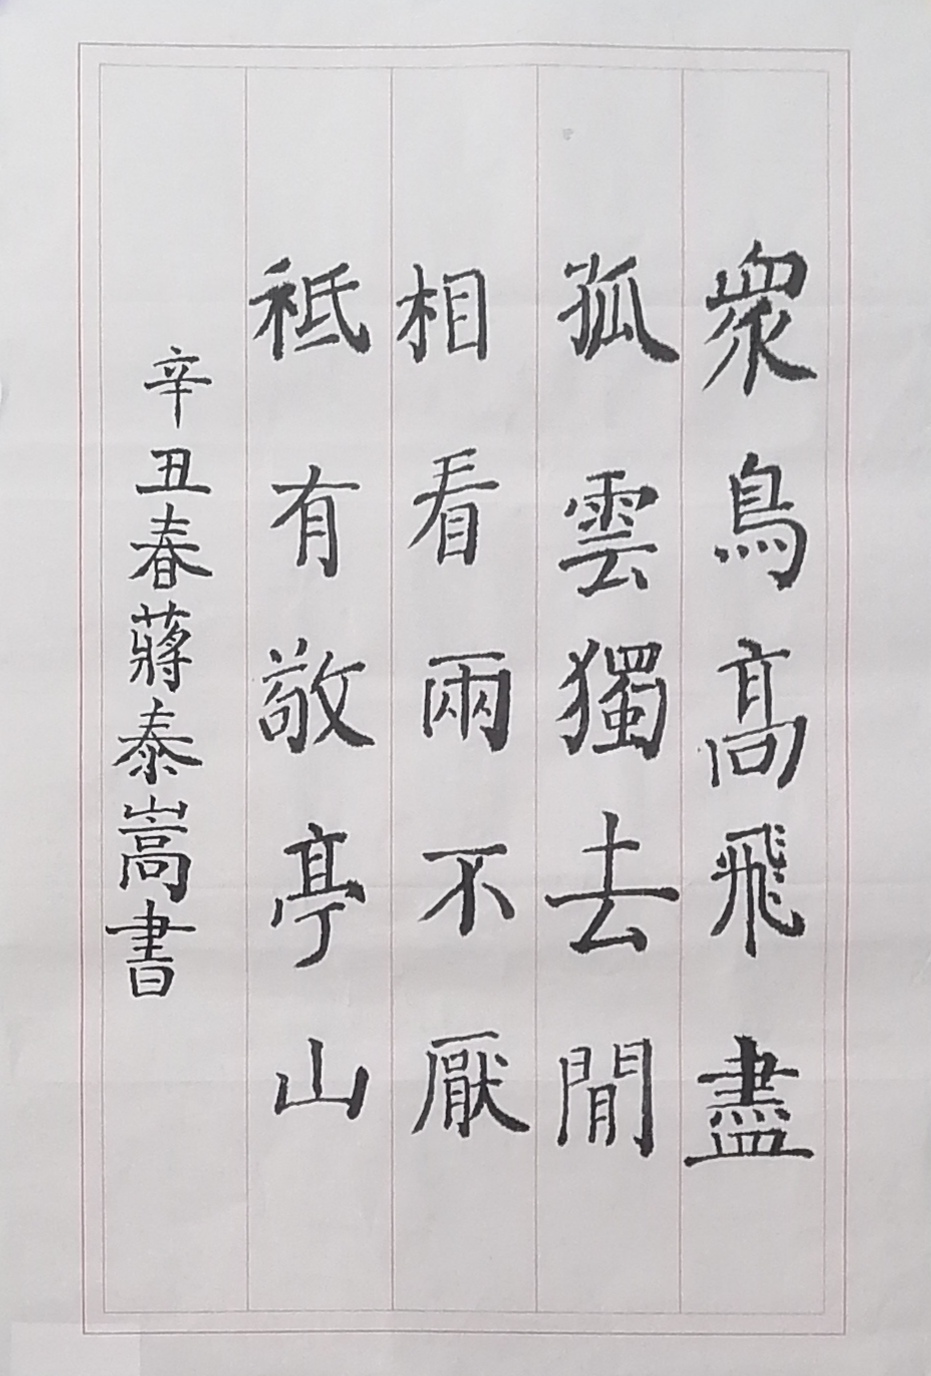 眾鳥高飛盡
孤雲獨去閒
相看兩不厭
袛有敬亭山
辛丑春蔣泰嵩書